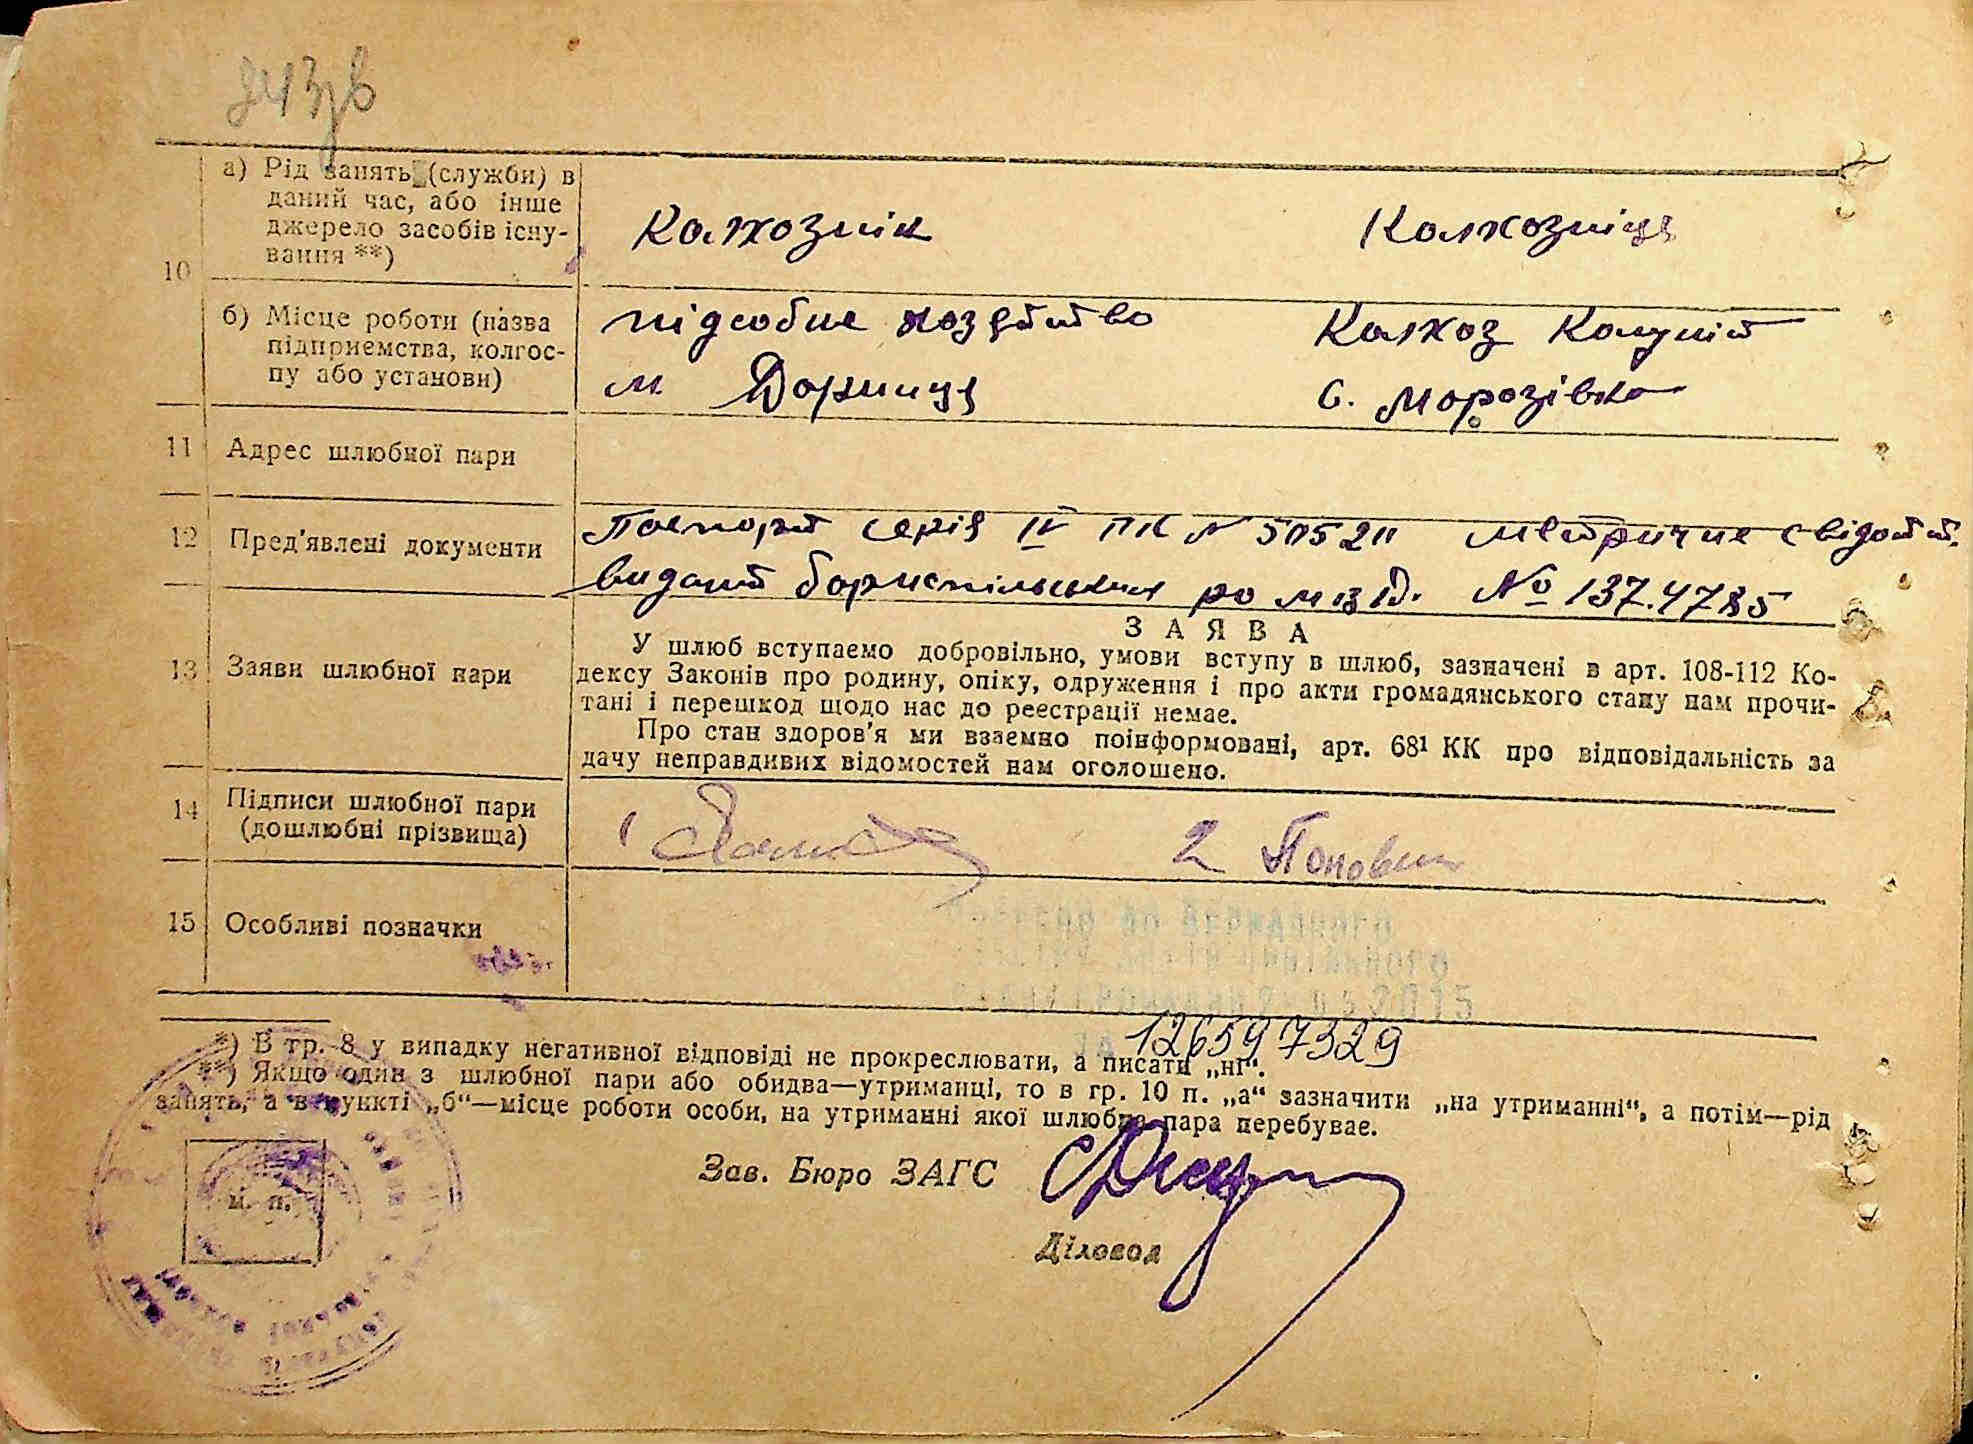 243зв
10
а) Рід занять (служби) в
даний час, або інше
джерело засобів існу-
вання **)
Колхознік
Колхозніця
б) Місце роботи (назва
підприємства, колгос-
пу або установи)
підсобне хозяйство
Колхоз Комуніст
м. Дарниця
с. Морозівка
11
Адрес шлюбної пари
12
Пред'явлені документи
Паспорт серія IV ПК N 505211 метричне свідот.
видант бориспільським ро мвд. № 137.4785
13
Заяви шлюбної пари
ЗАЯВА
У шлюб вступаемо добровільно, умови вступу в шлюб, зазначені в арт. 108-112 Ко-
дексу Законів про родину, опіку, одруження і про акти громадянського стану нам прочи-
тані і перешкод щодо нас до реєстрації немає.
Про стан здоров'я ми взаємно поінформовані, арт. 68¹ КК про відповідальність за
дачу неправдивих відомостей нам оголошено.
14
Підписи шлюбної пари
(дошлюбні прізвища)
1
2 Попович
15
Особливі позначки
ДО ДЕРЖАВНОГО
2015
ЗА 126597329
*) В гр. 8 у випадку негативної відповіді не прокреслювати, а писати „ні“.
**) Якщо один з шлюбної пари або обидва—утриманці, то в гр. 10 п. „а“ зазначити „на утриманні“, а потім—рід
занять, а в пункті „б“—місце роботи особи, на утриманні якої шлюбна пара перебуває.
Зав. Бюро ЗАГС
м. п.
Діловод